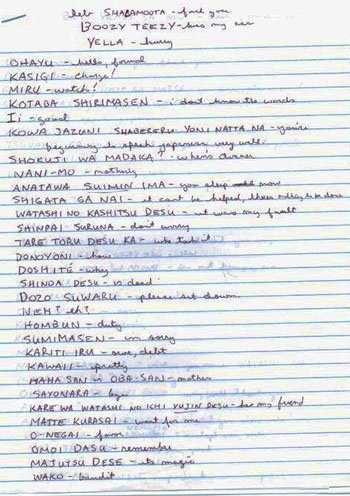 SHABAMOOTA - fuck you
BOOZY TEEZY - kiss my
YELLA - hurry
OHAYU - hello, formal
KASIGI - charge!
MIRU - watch!
KOTABA SHIRIMASEN - i don't know the words
Ii - good
KOWA JAZUNI SHABERERU YONI NATTA NA - you're
beginning to speak japanese very well
SHOKUJI WA MADAKA? - where's dinner
NANI-MO - nothing
ANATAWA SUIMIN IMA - you sleep now
SHIGATA GA NAI - it can't be helped, theres nothing to be done
WATASHI NO KASHITSU DESU - it was my fault
SHINPAI SURUNA - don't worry
TARE TORU DESU KA - who took it
DONOYONI - how
DOSHITE - why
SHINDA DESU - is dead
DOZO SUWARU - please sit down.
NEH? eh?
HOMBUN - duty
SUMIMASEN - im sorry
KARITI IRU - owe, debt
KAWAII - pretty
HAHA SAN - OBA-SAN - mother
SAYONARA - bye
KARE WA WATASHI NO ICHI YUJIN DESU - hes my friend
MATTE KUDASAI - wait for me
O-NEGAI - favor
OMOI DASU - remember
MAJUTSU DESE - its magic
WAKO - bandit